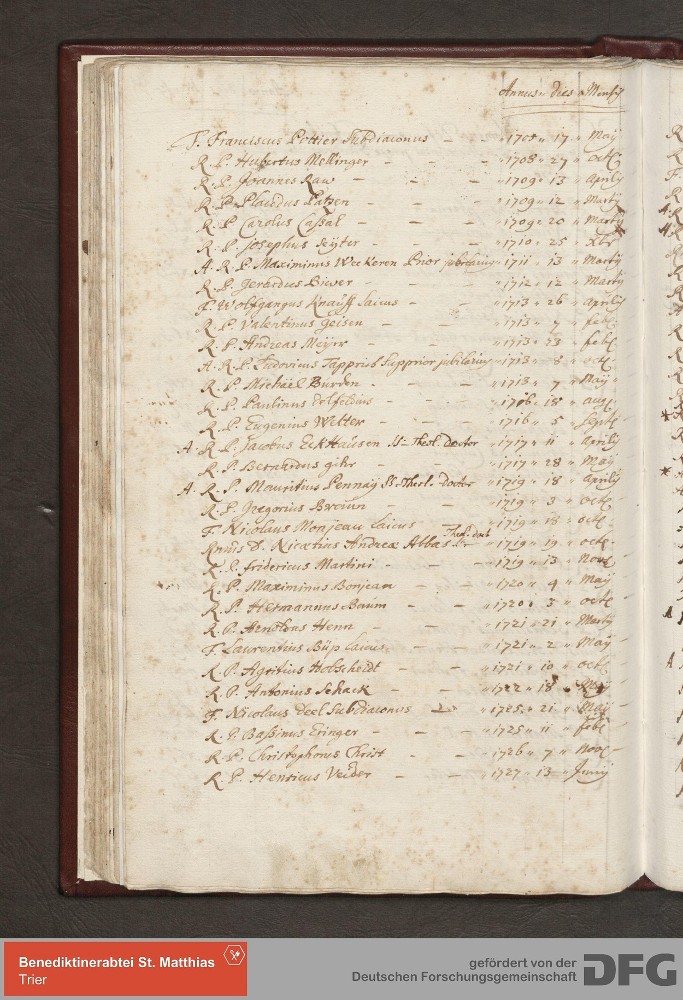 Annus. dies Mensis
F. Franciscus Pottier Subdiaconus — — 1708 17 Maÿ
R. P. Hubertus Mellinger — — — 1708 27 octb
R. P. Joannes Raw — — — 1709 13 Aprilÿ
R. P. Placidus Latzen — — 1709 12 Martÿ
R. P. Carolus Caßal — — — 1709 20 Martÿ
R. P. Josephus — — 1710 25 Xbr
A. R. P. Maximinus Weckeren Prior jubilarius 1711 13 Martÿ
R. P. Gerardus Biwer — — — 1712 12 Martÿ
F. Wolfgangus Knauff laicus — — 1713 26 aprilÿ
R. P. Valentinus Geisen — — — 1713 7 febr
R. P. Andreas Meÿer — — — 1713 febr
A. R. P. Ludovicus Tapprich Supprior jubilarius 1713 8 octb
R. P. Michael Burden — — — 1713 7 Maÿ
R. P. Paulinus — — 18 aug
R. P. Eugenius Wetter — — — 1716 5 Septb
A. R. P. Jacobus Eckhausen SS. Theol. Doctor 1717 11 aprilÿ
R. P. Bernardus gihr — — — 1717 28 Maÿ
A. R. P. Mauritius Pennaÿ SS. Theol. Doctor 1719 18 aprilÿ
R. P. Gregorius Broun — — 1719 3 octb
F. Nicolaus Monjean laicus 1719 18 octb
Rmus D. Nicetius Andreæ Abbas Theol. doct. 1719 19 octb
R. P. Fridericus Martini — — — 1719 13 Nove
R. P. Maximinus Bonjean — — 1720 9 Maÿ
R. P. Hermannus Baum — — 1720 3 octb
R. P. Henn — — — 1721 21 Martÿ
F. Laurentius Büp laicus — — 1721 2 Maÿ
R. P. Agritius Holscheidt — — 1721 10 octb
R. P. Antonius Schack — — — 1722 18
F. Nicolaus Deel Subdiaconus — 1725 21 Maÿ
R. P. Baßinus Eringer — — — 1725 11 febr
R. P. Christophorus Christ — — 1726 7 Nove
R. P. Henricus Veider — — — 1727 13 Junÿ
Benediktinerabtei St. Matthias
Trier
gefördert von der
Deutschen Forschungsgemeinschaft
DFG